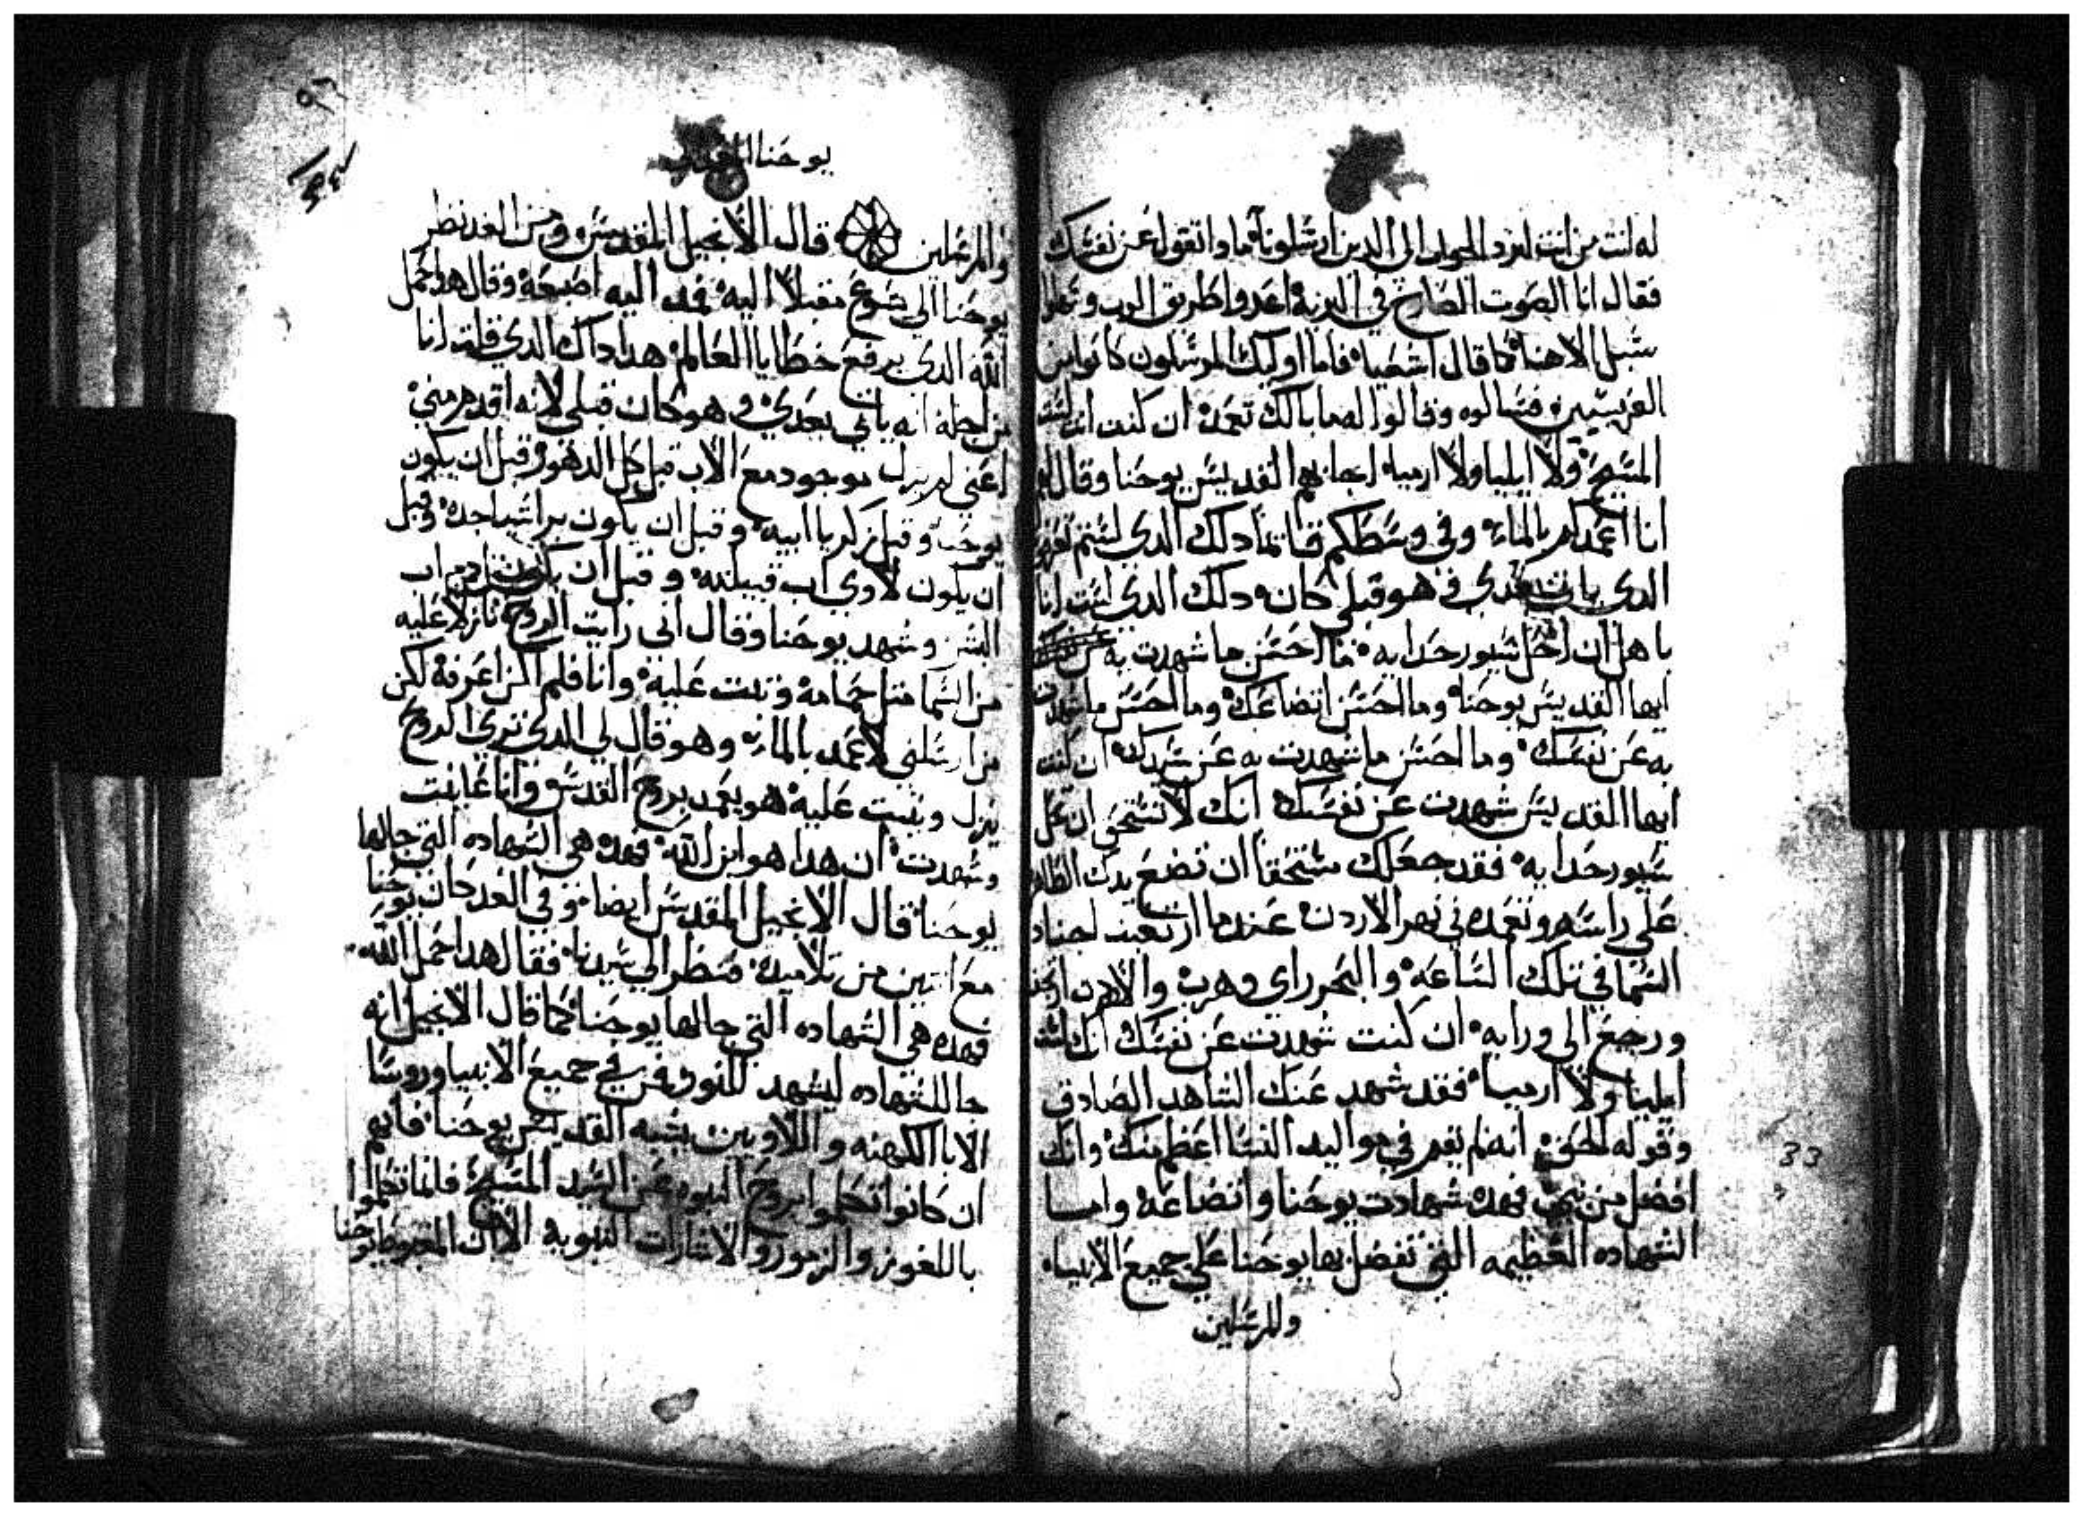 له انت من انت لنرد الجواب الى الدين ارسلونا مادا تقول عن نفسك
فقال انا الصوت الصارخ في البريه اعدوا طريق الرب وسهلوا
سبل الاهنا كما قال اشعيا فاما اوليك المرسلون كانوا من
الفريسيين فسالوه وقالوا له ما بالك تعمد ان كنت انت لست
المسيح ولا ايليا ولا ارميا اجابهم القديس يوحنا وقال لهم
انا اعمدكم بالماء وفي وسطكم قايما دلك الدي لستم تعرفونه
الدي ياتي بعدي وهو قبلي كان دلك الدي لست انا
باهل ان احل سيور حدايه ما احسن ما شهدت به
ايها القديس يوحنا وما احسن اتضاعك وما احسن ما شهدت
به عن نفسك وما احسن ما شهدت به عن سيدك ان كنت
ايها القديس شهدت عن نفسك انك لا تستحق ان تحل
سيور حدايه فقد جعلك مستحقا ان تضع يدك الطاهره
على راسه وتعمده في نهر الاردن عندما ارتعبت اجناد
السما في تلك الساعه والبحر راى وهرب والاردن
ورجع الى ورايه ان كنت شهدت عن نفسك انك لست
ايليا ولا ارميا فقد شهد عنك الشاهد الصادق
وقوله الحق انه لم يقم في مواليد النسا اعظم منك وانك
افضل من نبي فهده شهادت يوحنا واتضاعه واما
الشهاده العظيمه التي تفضل بها يوحنا على جميع الانبياء
والمرسلين
٩٦
يوحنا
والمرسلين قال الانجيل المقدس ومن الغد نظر
يوحنا الى يسوع مقبلا اليه فمد اليه اصبعه وقال هدا حمل
الله الدي يرفع خطايا العالم هدا داك الدي قلت انا
من اجله انه ياتي بعدي وهو كان قبلي لانه اقدم مني
اعني لم يزل موجود مع الاب قبل كل الدهور وقبل ان يكون
يوحنا وقبل زكريا ابيه وقبل ان يكون براشيا جده وقبل
ان يكون لاوي اب قبيلته وقبل ان يكون ادم اب
البشر وشهد يوحنا وقال اني رايت الروح نازلا عليه
من السما مثل حمامه وثبت عليه وانا فلم اكن اعرفه لكن
من ارسلني لاعمد بالماء وهو قال لي الدي ترى الروح
ينزل ويثبت عليه هو يعمد بروح القدس وانا عاينت
وشهدت ان هدا هو ابن الله فهده هي الشهاده التي جا لها
يوحنا قال الانجيل المقدس ايضا وفي الغد كان يوحنا
مع اتنين من تلاميده فنظر الى سيدنا فقال هدا حمل الله
فهده هي الشهاده التي جا لها يوحنا كما قال الانجيل انه
جا للشهاده ليشهد للنور فمن في جميع الانبيا وروسا
الابا الكهنه واللاويين يشبه القديس يوحنا فانهم
ان كانوا تكلموا بروح النبوه عن السيد المسيح فانما تكلموا
باللغوز والرموز والاشارات النبويه الا ان المغبوط يوحنا
33